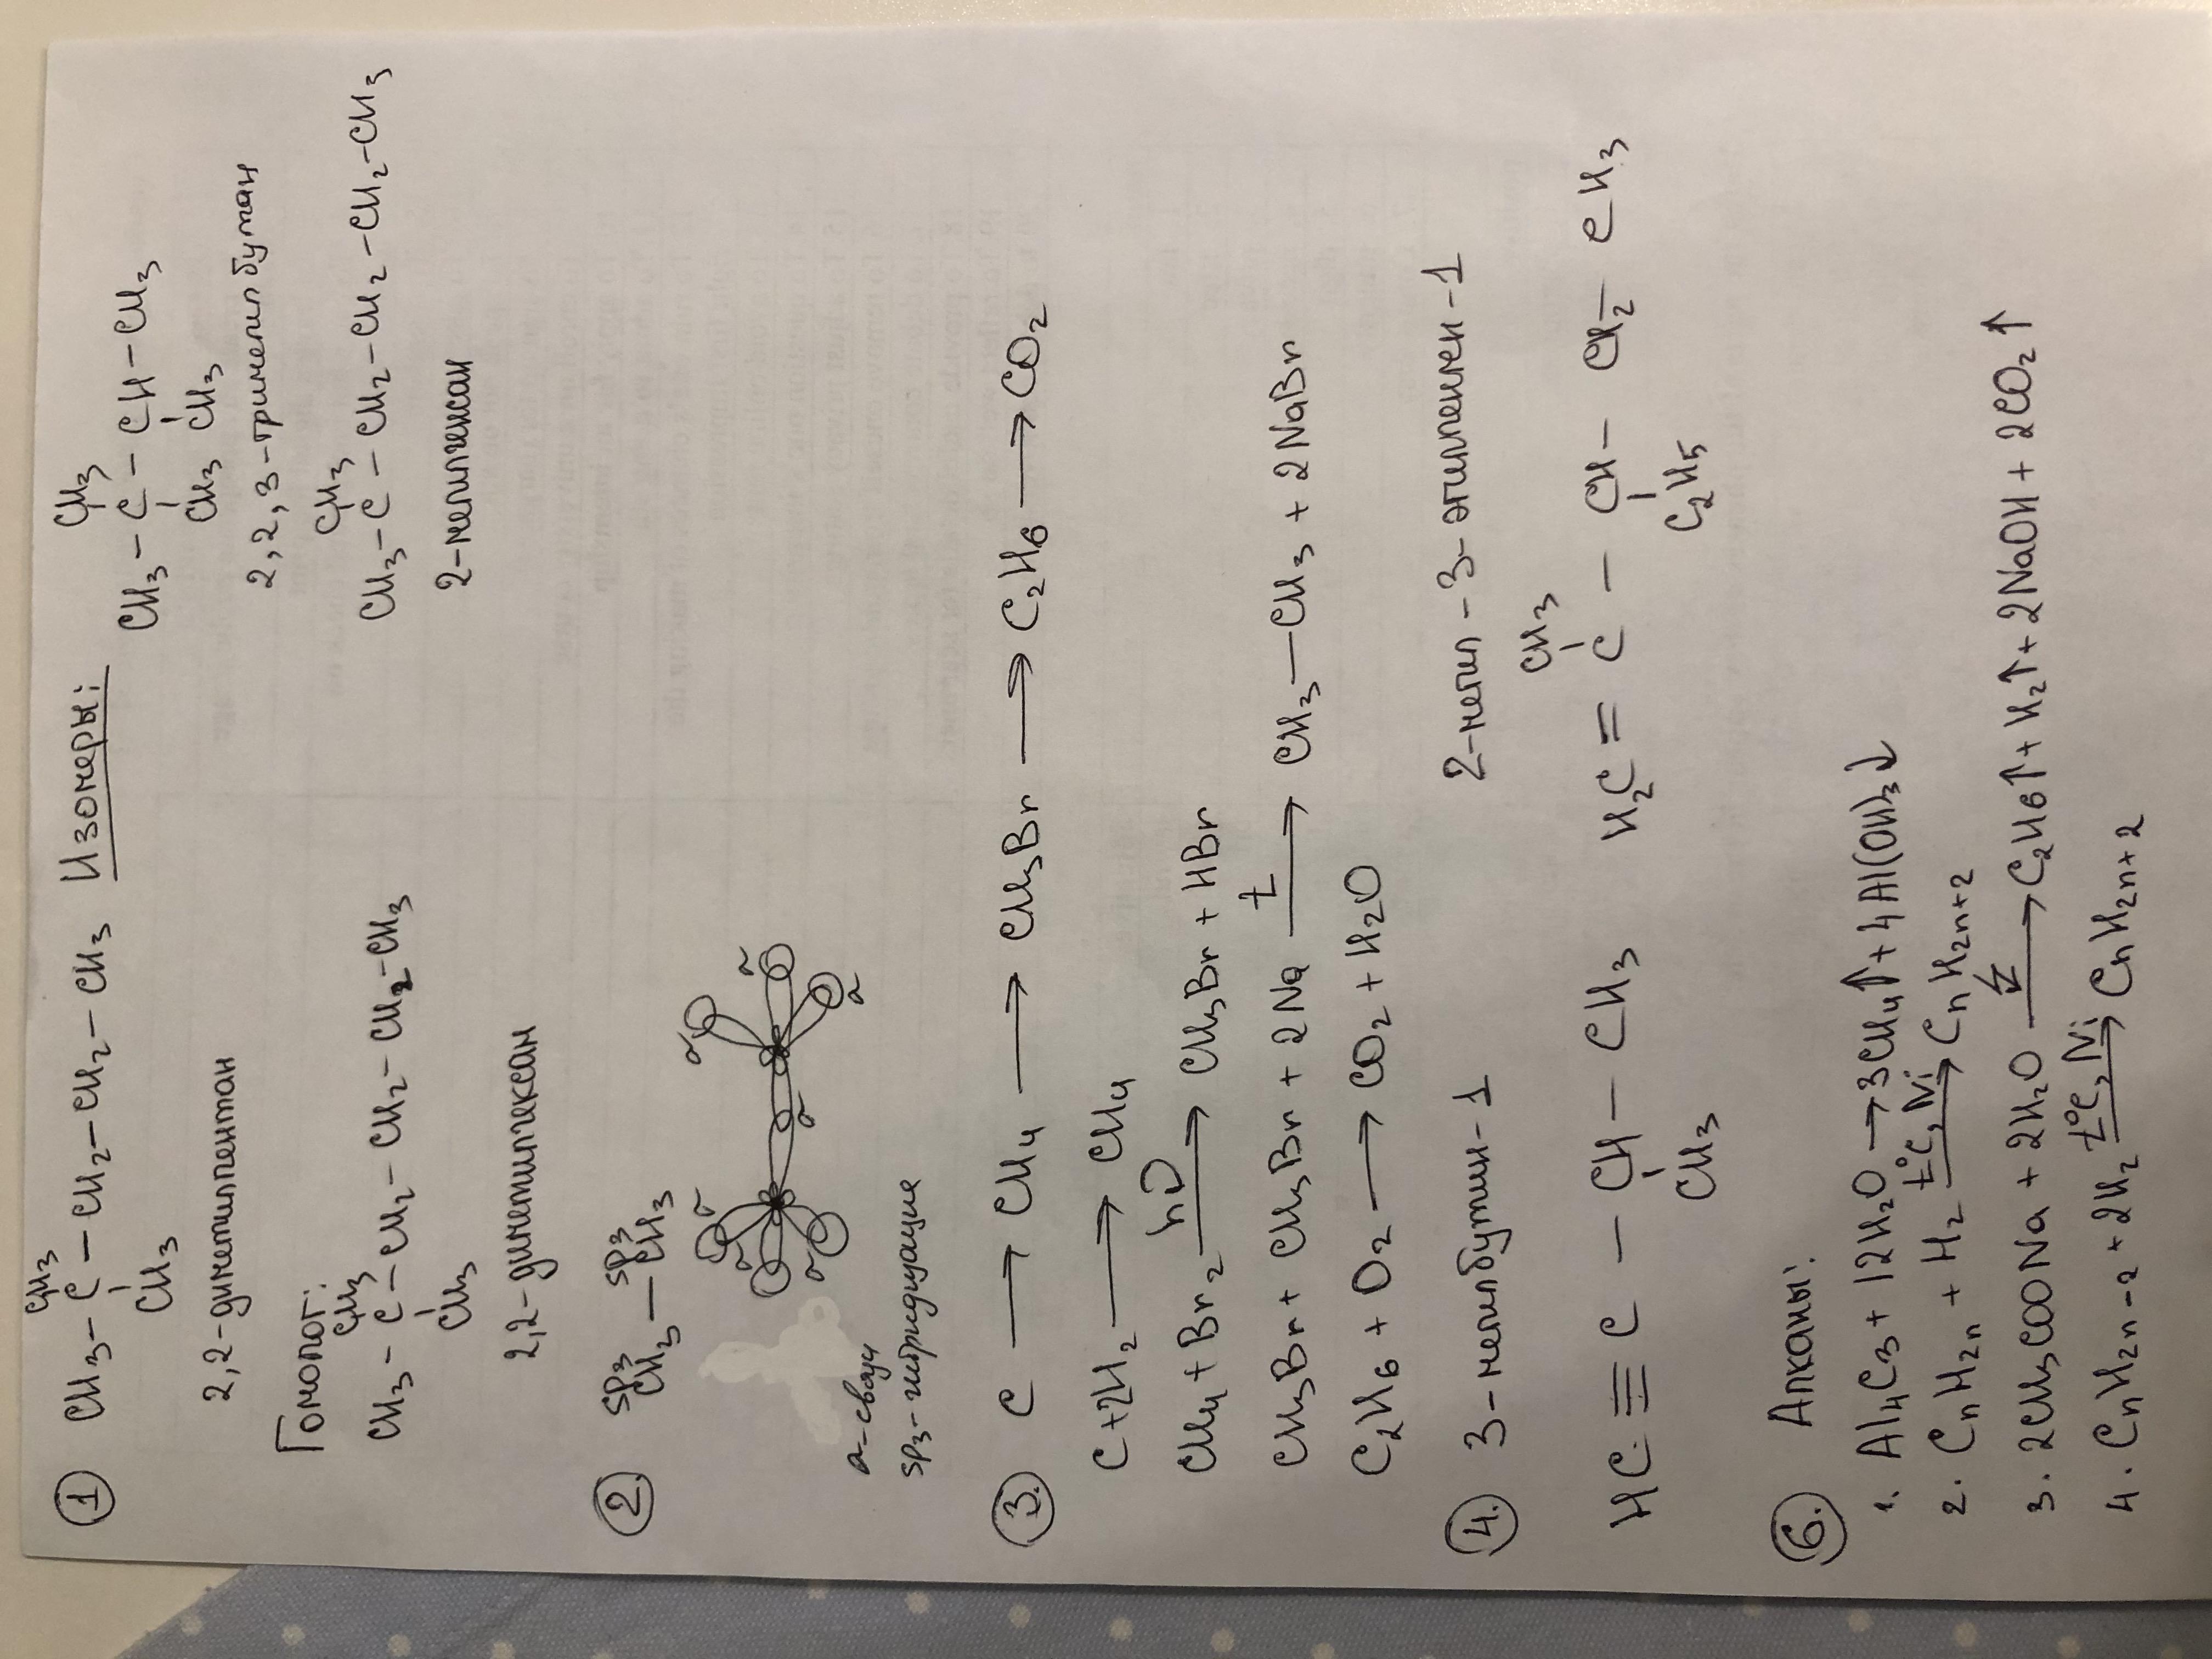 ① CH₃ CH₃
CH₃ – C – CH₂ – CH₂ – CH₃ Изомеры: CH₃ – C – CH – CH₃
CH₃ CH₃ CH₃
2,2-диметилпентан 2,2,3-триметилбутан
Гомолог: CH₃
CH₃ CH₃ – C – CH₂ – CH₂ – CH₂ – CH₃
CH₃ – C – CH₂ – CH₂ – CH₂ – CH₃
CH₃ 2-метилгексан
2,2-диметилгексан
② SP³ SP³
CH₃ – CH₃
σ σ σ σ σ σ σ
σ-связи
SP₃-гибридизация
③. C ⟶ CH₄ ⟶ CH₃Br ⟶ C₂H₆ ⟶ CO₂
C + 2H₂ ⟶ CH₄
hυ
CH₄ + Br₂ ⟶ CH₃Br + HBr
t
CH₃Br + CH₃Br + 2Na ⟶ CH₃ – CH₃ + 2NaBr
C₂H₆ + O₂ ⟶ CO₂ + H₂O
④. 3-метилбутин-1 2-метил-3-этилпентен-1
CH₃
HC ≡ C – CH – CH₃ H₂C = C – CH – CH₂ – CH₃
CH₃ C₂H₅
⑥. Алканы:
1. Al₄C₃ + 12H₂O → 3CH₄↑ + 4Al(OH)₃↓
t°C, Ni
2. CₙH₂ₙ + H₂ ⟶ CₙH₂ₙ₊₂
3. 2CH₃COONa + 2H₂O ⟶ C₂H₆↑ + H₂↑ + 2NaOH + 2CO₂↑
t°C, Ni
4. CₙH₂ₙ₋₂ + 2H₂ ⟶ CₙH₂ₙ₊₂